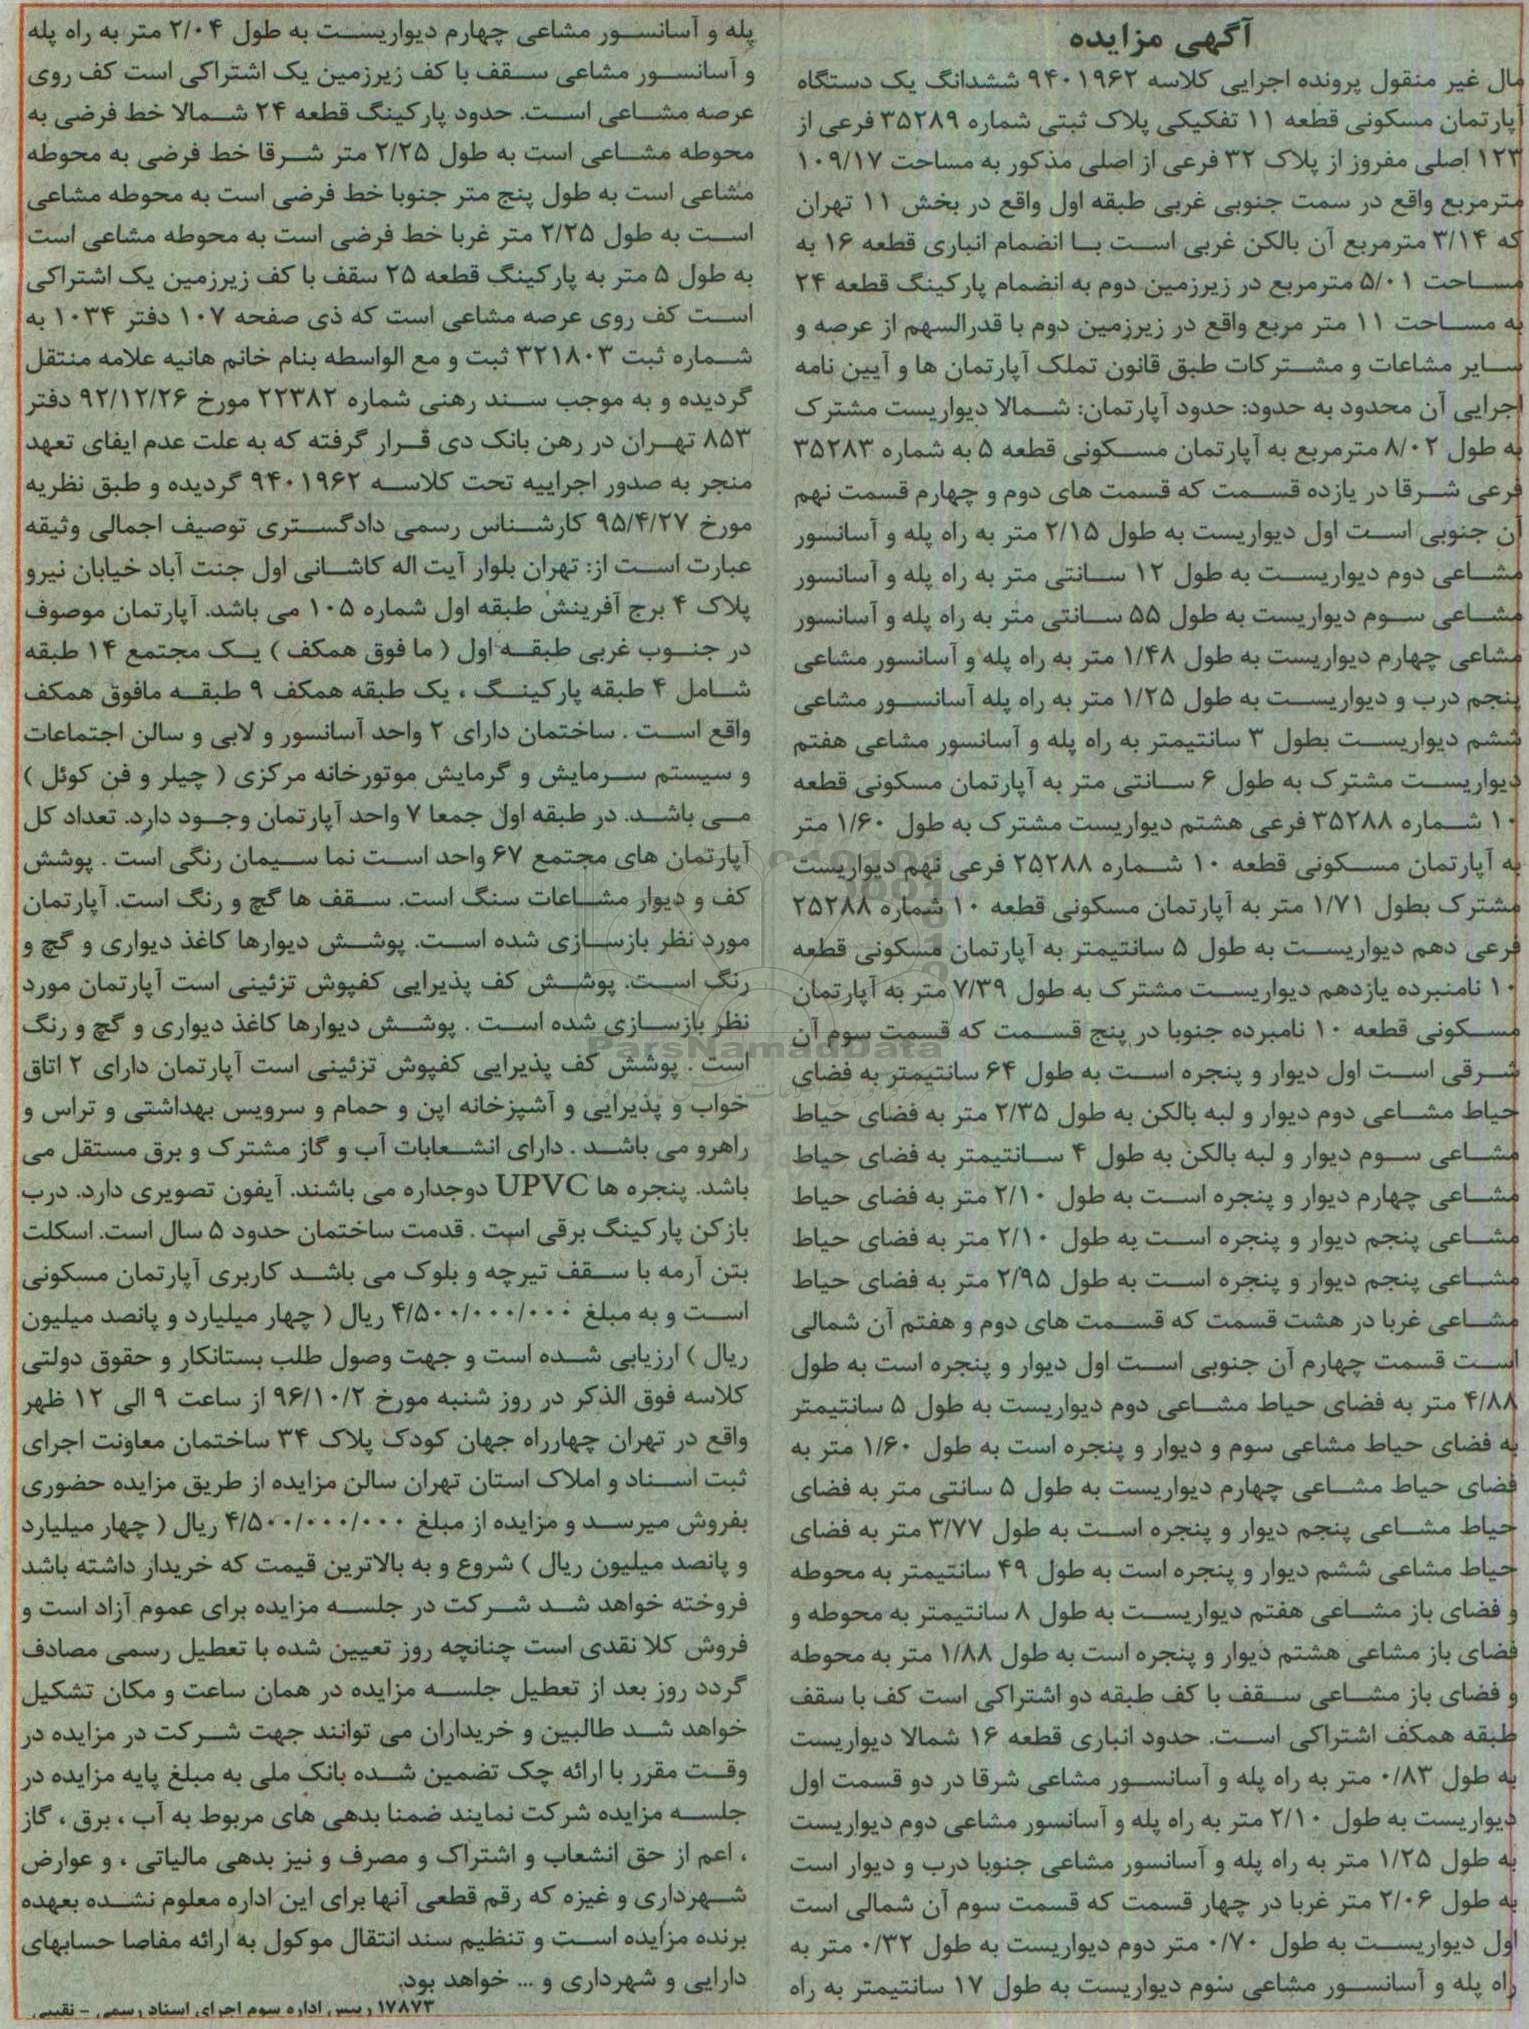 آگهی مزایده
مال غیر منقول پرونده اجرایی کلاسه ۹۴۰۱۹۶۲ ششدانگ یک دستگاه
آپارتمان مسکونی قطعه ۱۱ تفکیکی پلاک ثبتی شماره ۳۵۲۸۹ فرعی از
۱۲۳ اصلی مفروز از پلاک ۳۲ فرعی از اصلی مذکور به مساحت ۱۰۹/۱۷
مترمربع واقع در سمت جنوبی غربی طبقه اول واقع در بخش ۱۱ تهران
که ۳/۱۴ مترمربع آن بالکن غربی است با انضمام انباری قطعه ۱۶ به
مساحت ۵/۰۱ مترمربع در زیرزمین دوم به انضمام پارکینگ قطعه ۲۴
به مساحت ۱۱ متر مربع واقع در زیرزمین دوم با قدرالسهم از عرصه و
سایر مشاعات و مشترکات طبق قانون تملک آپارتمان ها و آیین نامه
اجرایی آن محدود به حدود: حدود آپارتمان: شمالا دیواریست مشترک
به طول ۸/۰۲ مترمربع به آپارتمان مسکونی قطعه ۵ به شماره ۳۵۲۸۳
فرعی شرقا در یازده قسمت که قسمت های دوم و چهارم قسمت نهم
آن جنوبی است اول دیواریست به طول ۲/۱۵ متر به راه پله و آسانسور
مشاعی دوم دیواریست به طول ۱۲ سانتی متر به راه پله و آسانسور
مشاعی سوم دیواریست به طول ۵۵ سانتی متر به راه پله و آسانسور
مشاعی چهارم دیواریست به طول ۱/۴۸ متر به راه پله و آسانسور مشاعی
پنجم درب و دیواریست به طول ۱/۲۵ متر به راه پله آسانسور مشاعی
ششم دیواریست بطول ۳ سانتیمتر به راه پله و آسانسور مشاعی هفتم
دیواریست مشترک به طول ۶ سانتی متر به آپارتمان مسکونی قطعه
۱۰ شماره ۳۵۲۸۸ فرعی هشتم دیواریست مشترک به طول ۱/۶۰ متر
به آپارتمان مسکونی قطعه ۱۰ شماره ۲۵۲۸۸ فرعی نهم دیواریست
مشترک بطول ۱/۷۱ متر به آپارتمان مسکونی قطعه ۱۰ شماره ۲۵۲۸۸
فرعی دهم دیواریست به طول ۵ سانتیمتر به آپارتمان مسکونی قطعه
۱۰ نامنبرده یازدهم دیواریست مشترک به طول ۷/۳۹ متر به آپارتمان
مسکونی قطعه ۱۰ نامبرده جنوبا در پنج قسمت که قسمت سوم آن
شرقی است اول دیوار و پنجره است به طول ۶۴ سانتیمتر به فضای
حیاط مشاعی دوم دیوار و لبه بالکن به طول ۲/۳۵ متر به فضای حیاط
مشاعی سوم دیوار و لبه بالکن به طول ۴ سانتیمتر به فضای حیاط
مشاعی چهارم دیوار و پنجره است به طول ۲/۱۰ متر به فضای حیاط
مشاعی پنجم دیوار و پنجره است به طول ۲/۱۰ متر به فضای حیاط
مشاعی پنجم دیوار و پنجره است به طول ۲/۹۵ متر به فضای حیاط
مشاعی غربا در هشت قسمت که قسمت های دوم و هفتم آن شمالی
است قسمت چهارم آن جنوبی است اول دیوار و پنجره است به طول
۴/۸۸ متر به فضای حیاط مشاعی دوم دیواریست به طول ۵ سانتیمتر
به فضای حیاط مشاعی سوم و دیوار و پنجره است به طول ۱/۶۰ متر به
فضای حیاط مشاعی چهارم دیواریست به طول ۵ سانتی متر به فضای
حیاط مشاعی پنجم دیوار و پنجره است به طول ۳/۷۷ متر به فضای
حیاط مشاعی ششم دیوار و پنجره است به طول ۴۹ سانتیمتر به محوطه
و فضای باز مشاعی هفتم دیواریست به طول ۸ سانتیمتر به محوطه و
فضای باز مشاعی هشتم دیوار و پنجره است به طول ۱/۸۸ متر به محوطه
و فضای باز مشاعی سقف با کف طبقه دو اشتراکی است کف با سقف
طبقه همکف اشتراکی است. حدود انباری قطعه ۱۶ شمالا دیواریست
به طول ۰/۸۳ متر به راه پله و آسانسور مشاعی شرقا در دو قسمت اول
دیواریست به طول ۲/۱۰ متر به راه پله و آسانسور مشاعی دوم دیواریست
به طول ۱/۲۵ متر به راه پله و آسانسور مشاعی جنوبا درب و دیوار است
به طول ۲/۰۶ متر غربا در چهار قسمت که قسمت سوم آن شمالی است
اول دیواریست به طول ۰/۷۰ متر دوم دیواریست به طول ۰/۳۲ متر به
راه پله و آسانسور مشاعی سوم دیواریست به طول ۱۷ سانتیمتر به راه
پله و آسانسور مشاعی چهارم دیواریست به طول ۲/۰۴ متر به راه پله
و آسانسور مشاعی سقف با کف زیرزمین یک اشتراکی است کف روی
عرصه مشاعی است. حدود پارکینگ قطعه ۲۴ شمالا خط فرضی به
محوطه مشاعی است به طول ۲/۲۵ متر شرقا خط فرضی به محوطه
مشاعی است به طول پنج متر جنوبا خط فرضی است به محوطه مشاعی
است به طول ۲/۲۵ متر غربا خط فرضی است به محوطه مشاعی است
به طول ۵ متر به پارکینگ قطعه ۲۵ سقف با کف زیرزمین یک اشتراکی
است کف روی عرصه مشاعی است که ذی صفحه ۱۰۷ دفتر ۱۰۳۴ به
شماره ثبت ۳۲۱۸۰۳ ثبت و مع الواسطه بنام خانم هانیه علامه منتقل
گردیده و به موجب سند رهنی شماره ۲۲۳۸۲ مورخ ۹۲/۱۲/۲۶ دفتر
۸۵۳ تهران در رهن بانک دی قرار گرفته که به علت عدم ایفای تعهد
منجر به صدور اجراییه تحت کلاسه ۹۴۰۱۹۶۲ گردیده و طبق نظریه
مورخ ۹۵/۴/۲۷ کارشناس رسمی دادگستری توصیف اجمالی وثیقه
عبارت است از: تهران بلوار آیت اله کاشانی اول جنت آباد خیابان نیرو
پلاک ۴ برج آفرینش طبقه اول شماره ۱۰۵ می باشد. آپارتمان موصوف
در جنوب غربی طبقه اول ( ما فوق همکف ) یک مجتمع ۱۴ طبقه
شامل ۴ طبقه پارکینگ ، یک طبقه همکف ۹ طبقه مافوق همکف
واقع است . ساختمان دارای ۲ واحد آسانسور و لابی و سالن اجتماعات
و سیستم سرمایش و گرمایش موتورخانه مرکزی ( چیلر و فن کوئل )
می باشد. در طبقه اول جمعا ۷ واحد آپارتمان وجود دارد. تعداد کل
آپارتمان های مجتمع ۶۷ واحد است نما سیمان رنگی است . پوشش
کف و دیوار مشاعات سنگ است. سقف ها گچ و رنگ است. آپارتمان
مورد نظر بازسازی شده است. پوشش دیوارها کاغذ دیواری و گچ و
رنگ است. پوشش کف پذیرایی کفپوش تزئینی است آپارتمان مورد
نظر بازسازی شده است . پوشش دیوارها کاغذ دیواری و گچ و رنگ
است . پوشش کف پذیرایی کفپوش تزئینی است آپارتمان دارای ۲ اتاق
خواب و پذیرایی و آشپزخانه اپن و حمام و سرویس بهداشتی و تراس و
راهرو می باشد . دارای انشعابات آب و گاز مشترک و برق مستقل می
باشد. پنجره ها UPVC دوجداره می باشند. آیفون تصویری دارد. درب
بازکن پارکینگ برقی است . قدمت ساختمان حدود ۵ سال است. اسکلت
بتن آرمه با سقف تیرچه و بلوک می باشد کاربری آپارتمان مسکونی
است و به مبلغ ۴/۵۰۰/۰۰۰/۰۰۰ ریال ( چهار میلیارد و پانصد میلیون
ریال ) ارزیابی شده است و جهت وصول طلب بستانکار و حقوق دولتی
کلاسه فوق الذکر در روز شنبه مورخ ۹۶/۱۰/۲ از ساعت ۹ الی ۱۲ ظهر
واقع در تهران چهارراه جهان کودک پلاک ۳۴ ساختمان معاونت اجرای
ثبت اسناد و املاک استان تهران سالن مزایده از طریق مزایده حضوری
بفروش میرسد و مزایده از مبلغ ۴/۵۰۰/۰۰۰/۰۰۰ ریال ( چهار میلیارد
و پانصد میلیون ریال ) شروع و به بالاترین قیمت که خریدار داشته باشد
فروخته خواهد شد شرکت در جلسه مزایده برای عموم آزاد است و
فروش کلا نقدی است چنانچه روز تعیین شده با تعطیل رسمی مصادف
گردد روز بعد از تعطیل جلسه مزایده در همان ساعت و مکان تشکیل
خواهد شد طالبین و خریداران می توانند جهت شرکت در مزایده در
وقت مقرر با ارائه چک تضمین شده بانک ملی به مبلغ پایه مزایده در
جلسه مزایده شرکت نمایند ضمنا بدهی های مربوط به آب ، برق ، گاز
، اعم از حق انشعاب و اشتراک و مصرف و نیز بدهی مالیاتی ، و عوارض
شهرداری و غیزه که رقم قطعی آنها برای این اداره معلوم نشده بعهده
برنده مزایده است و تنظیم سند انتقال موکول به ارائه مفاصا حسابهای
دارایی و شهرداری و ... خواهد بود.
۱۷۸۷۳ رییس اداره سوم اجرای اسناد رسمی - نقیبی
ParsNamadData